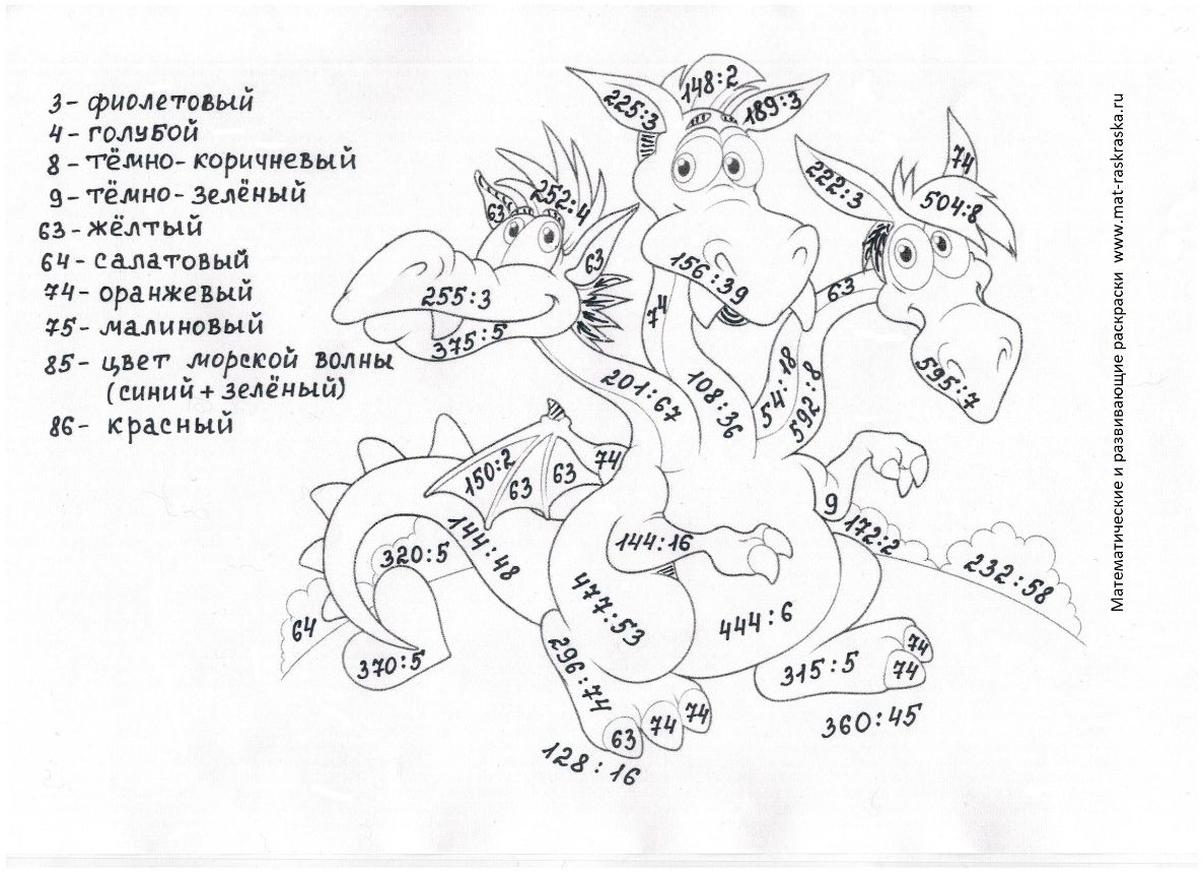 3- фиолетовый
4- голубой
8- тёмно-коричневый
9- тёмно-зелёный
63- жёлтый
64- салатовый
74- оранжевый
75- малиновый
85- цвет морской волны
(синий + зелёный)
86- красный
148:2
225:3
189:3
74
222:3
504:8
252:4
63
63
156:39
63
255:3
74
375:5
595:7
201:67
108:36
54:18
592:8
150:2
63
63
74
9
144:48
172:2
320:5
144:16
232:58
477:53
444:6
64
370:5
296:74
315:5
74
74
63
74
74
360:45
128:16
Математические и развивающие раскраски www.mat-raskraska.ru